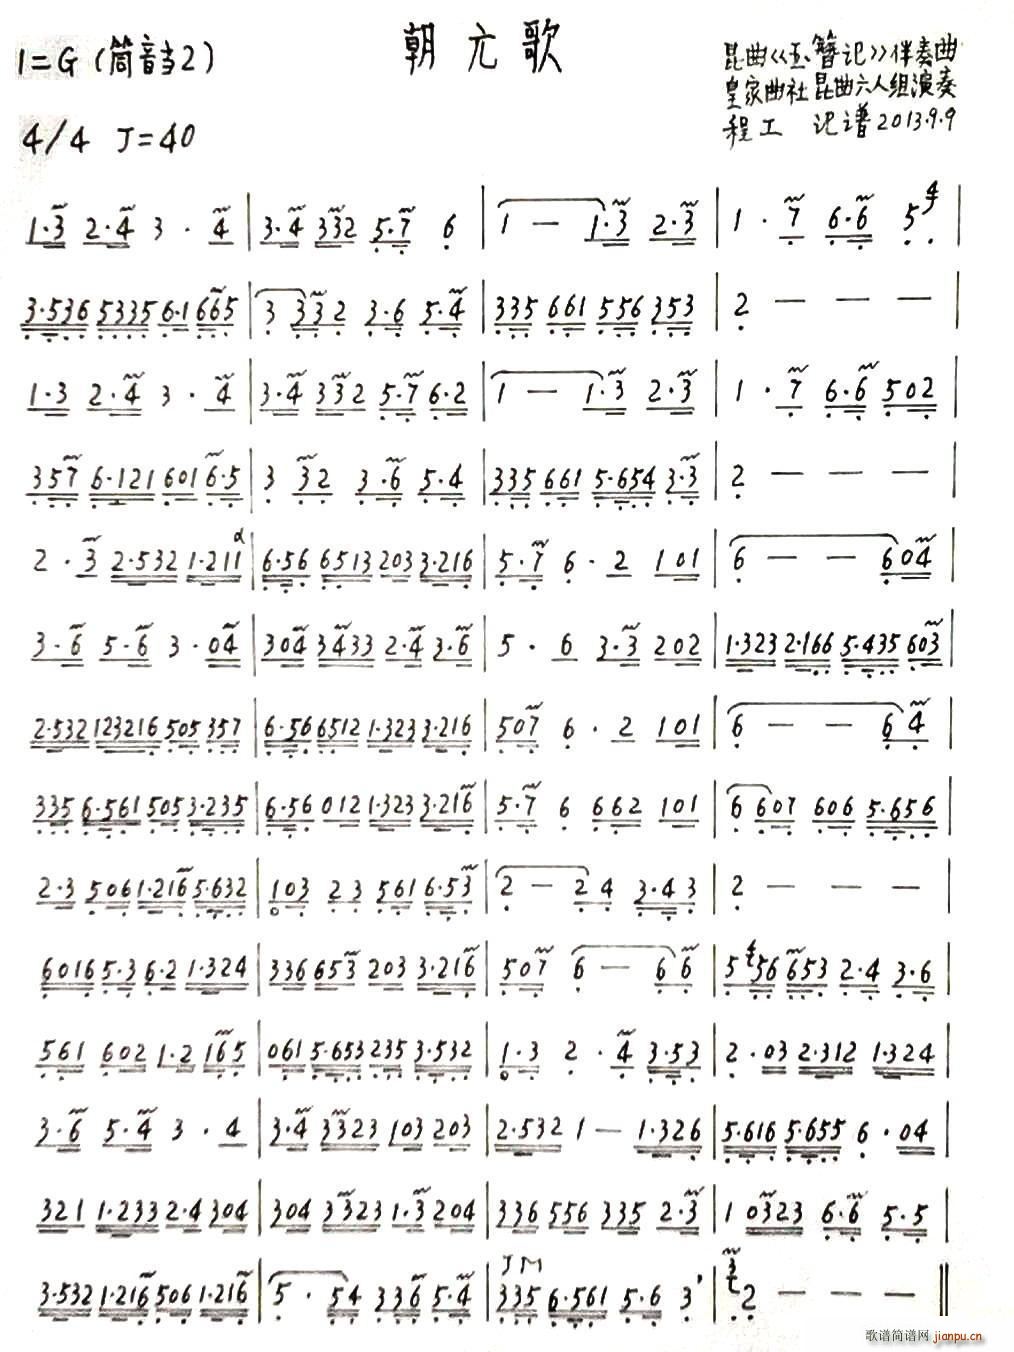 朝元歌
1=G（筒音当2）
昆曲《玉簪记》伴奏曲
皇家曲社 昆曲六人组演奏
4/4 J=40
程工 记谱 2013.9.9
1·3 2·4 3·4 | 3·4 332 5·7 6 | 1 — 1·3 2·3 | 1·7 6·6 5 4 |
3·536 5335 6·1 665 | 3 332 3·6 5·4 | 335 661 556 353 | 2 — — —
1·3 2·4 3·4 | 3·4 332 5·7 6·2 | 1 — 1·3 2·3 | 1·7 6·6 502 |
357 6·121 601 6·5 | 3 32 3·6 5·4 | 335 661 5·654 3·3 | 2 — — —
2·3 2·532 1·211 | 6·56 6513 203 3·216 | 5·7 6·2 101 | 6 — — 604 |
3·6 5·6 3·04 | 304 3433 2·4 3·6 | 5·6 3·3 202 | 1·323 2·166 5·435 603 |
2·532 123216 505 357 | 6·56 6512 1·323 3·216 | 507 6·2 101 | 6 — — 64 |
335 6·561 505 3·235 | 6·56 012 1·323 3·216 | 5·7 6 662 101 | 6 607 606 5·656 |
2·3 506 1·216 5·632 | 103 23 561 6·53 | 2 — 24 3·43 | 2 — — —
6016 5·3 6·2 1·324 | 336 653 203 3·216 | 507 6 — 66 | 5 56 653 2·4 3·6 |
561 602 1·2 165 | 061 5·653 235 3·532 | 1·3 2·4 3·53 | 2·03 2·312 1·324 |
3·6 5·4 3·4 | 3·4 3323 103 203 | 2·532 1 — 1·326 | 5·616 5·655 6·04 |
321 1·233 2·4 304 | 304 3323 1·3 204 | 336 556 335 2·3 | 1 0323 6·6 5·5 |
3·532 1·216 506 1·216 | 5·54 336 5·4 | 335 6·561 5·6 3' | 3 2 — — — ‖
歌谱简谱网 jianpu.cn